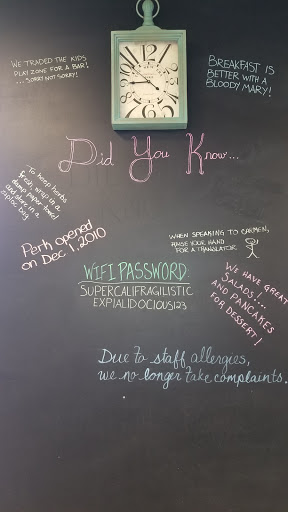 WE TRADED THE KIDS
PLAY ZONE FOR A BAR!
...SORRY NOT SORRY!
BREAKFAST IS
BETTER WITH A
BLOODY MARY!
Did You Know...
To keep herbs
fresh, wrap in a
damp paper-towel
and store in a
ziploc bag
Perk opened
on Dec 1, 2010
WHEN SPEAKING TO CARMEN,
RAISE YOUR HAND
FOR A TRANSLATOR
WIFI PASSWORD:
SUPERCALIFRAGILISTIC
EXPIALIDOCIOUS123
WE HAVE GREAT
SALADS!...
AND PANCAKES
FOR DESSERT!
Due to staff allergies,
we no longer take complaints.